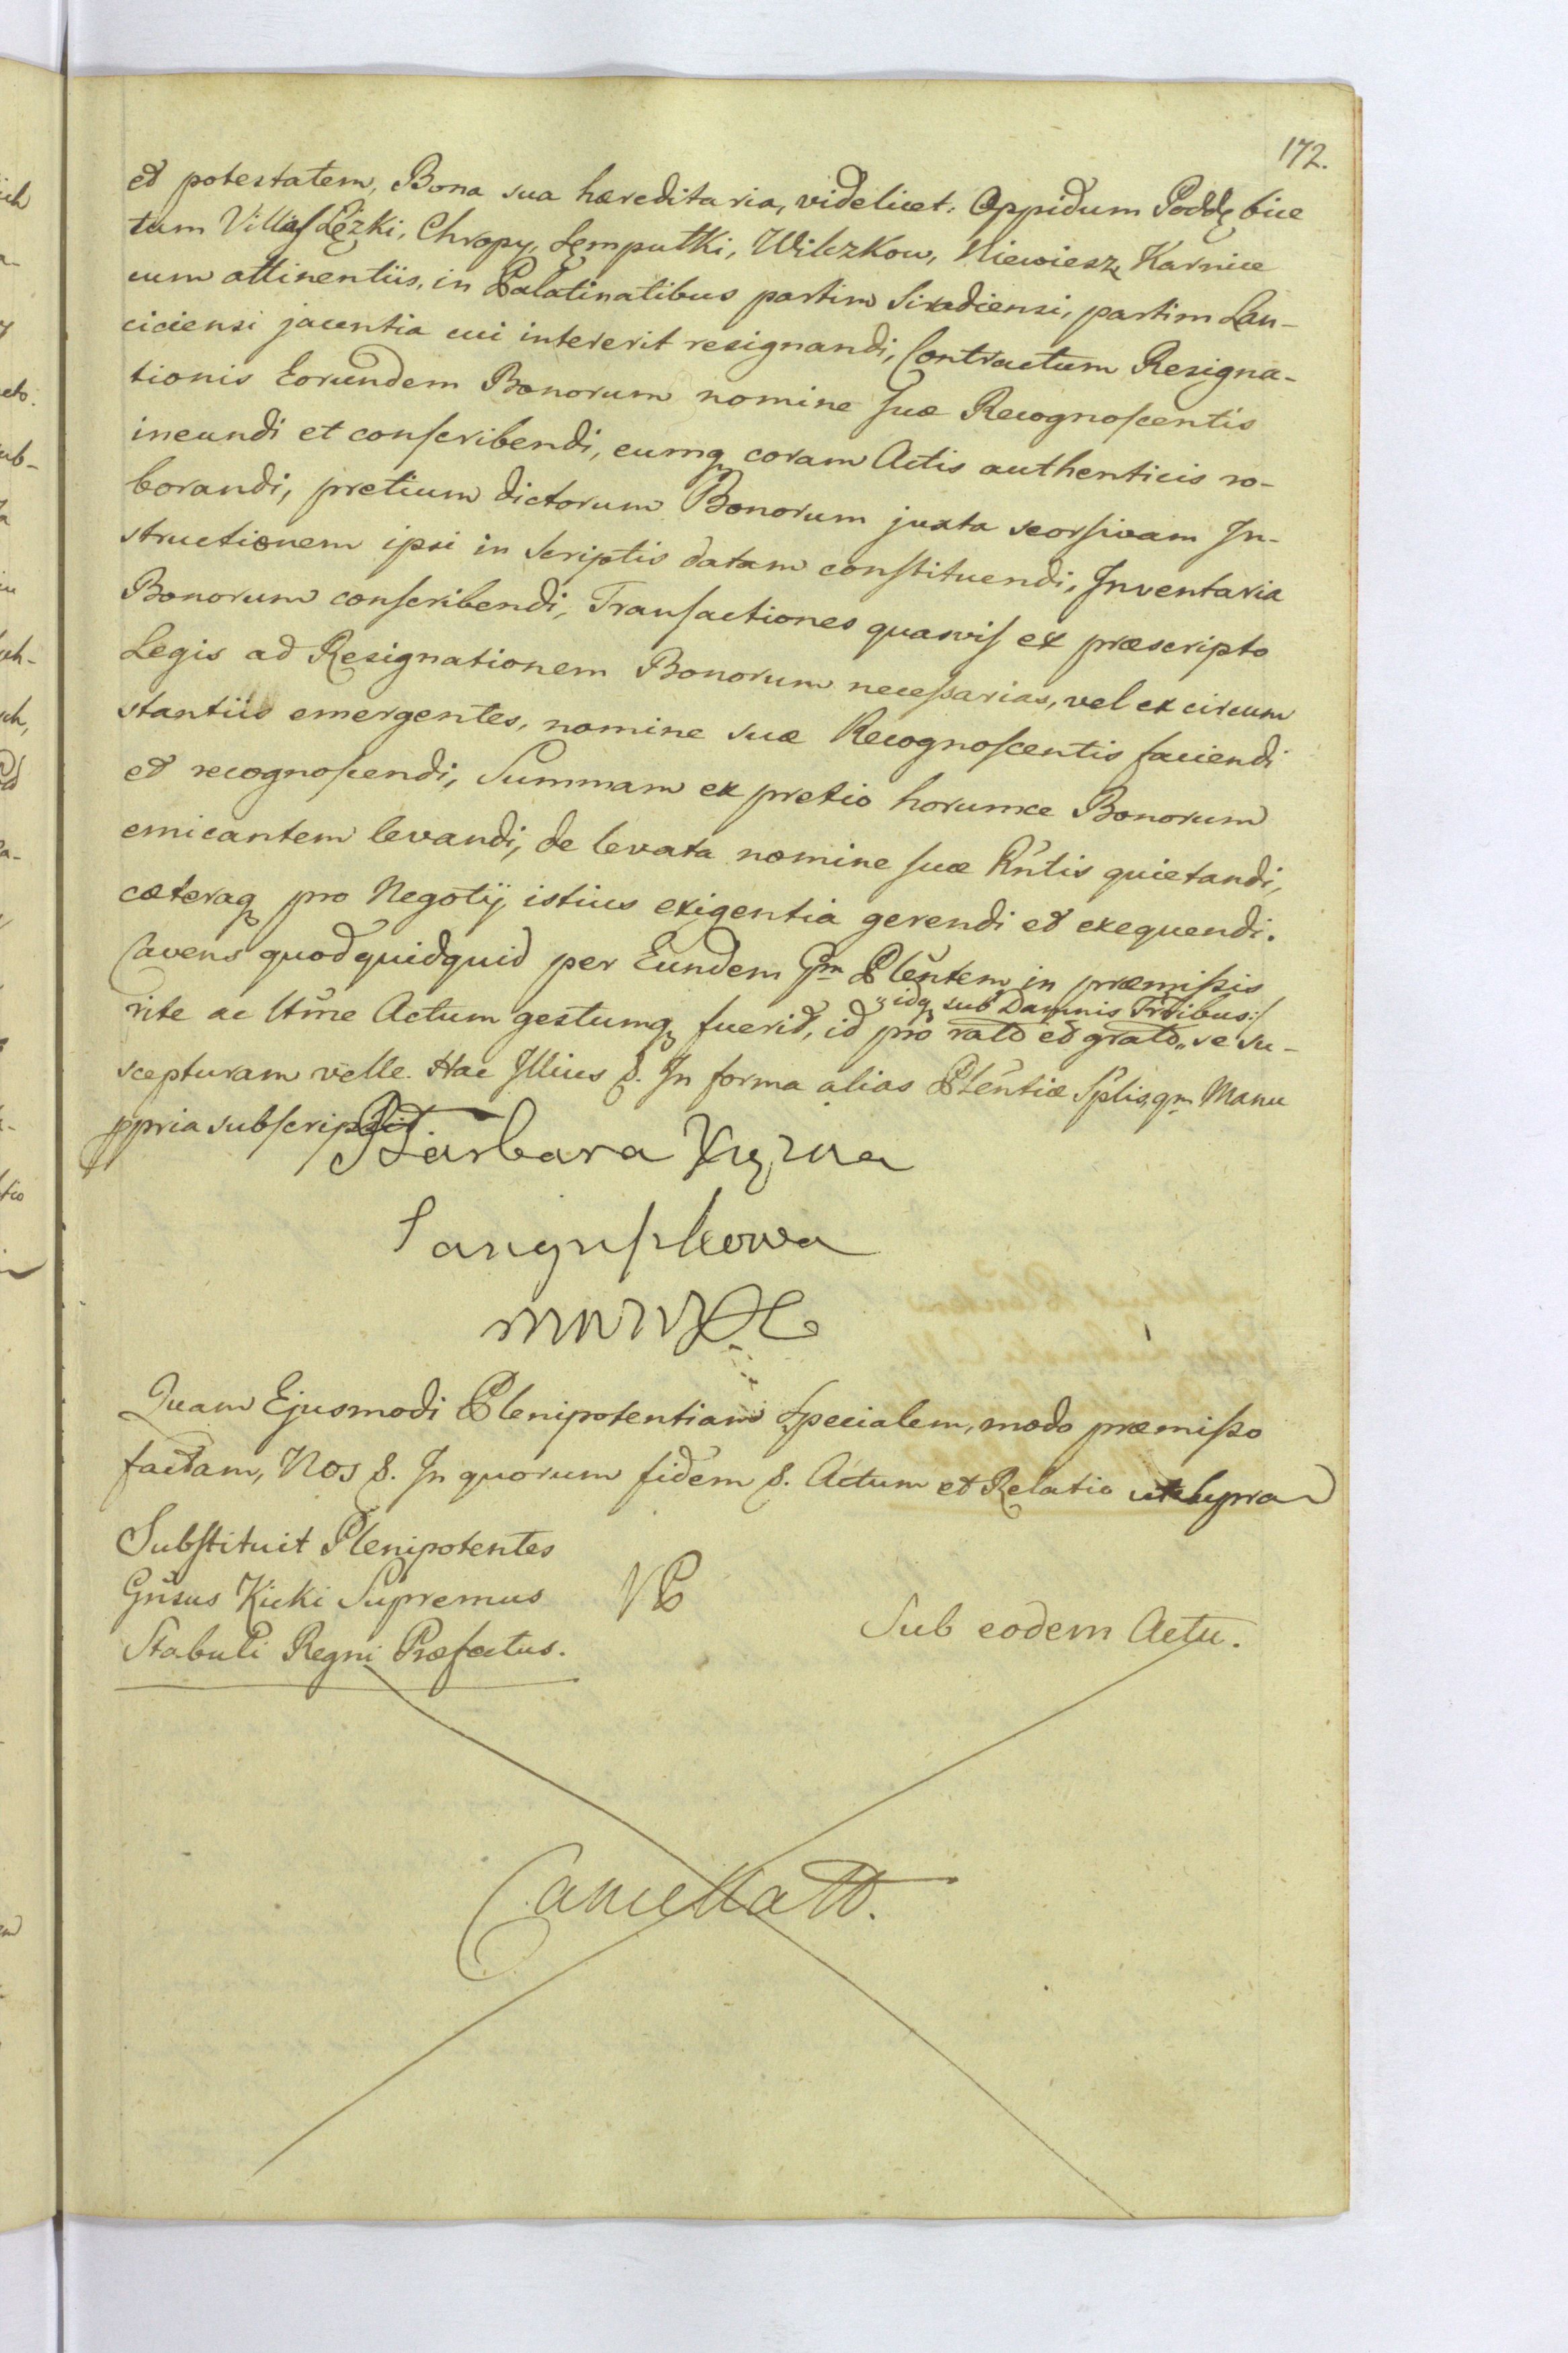 172.
et potestatem, Bona sua hæreditaria, videlicet. Oppidum Poddębice
tum Villas Lęzki, Chropy, Lęmpultki, Wilczkow, Niewiesz, Karnice
cum attinentiis, in Palatinatibus partim Siradiensi, partim Lan-
ciciensi jacentia cui intererit resignandi, Contractum Resigna-
tionis Eorundem Bonorum nomine suæ Recognoscentis
ineundi et conscribendi, eumq coram Actis authenticis ro-
borandi, pretium dictorum Bonorum juxta seorsivam In-
structionem ipsi in Scriptis datam constituendi, Inventaria
Bonorum conscribendi, Transactiones quasvis ex præscripto
Legis ad Resignationem Bonorum necessarias, vel ex circum
stantiis emergentes, nomine suæ Recognoscentis faciendi
et recognoscendi, Summam ex pretio horumce Bonorum
emicantem levandi, de levata nomine suæ Rntis quietandi,
cæteraq pro Negotij istius exigentia gerendi et exequendi.
Cavens quod quidquid per Eundem Gm Plentem in præmissis
rite ac ltme Actum gestumq fuerit, id pro rato et grato „ se su-
„ idq sub Damnis Trribus :/
scepturam velle. Hac Illius &. In forma alias Plentiæ Splis, qm Manu
ppria subscripsit.
Barbara Xiężna
Sanguszkowa
MMWXL
Quam Ejusmodi Plenipotentiam Specialem, modo præmisso
factam, Nos &. In quorum fidem &. Actum et Relatio ut supra
Substituit Plenipotentes
Gnsus Kicki Supremus
Stabuli Regni Præfectus.
VP
Sub eodem Actu.
Cancellatt.